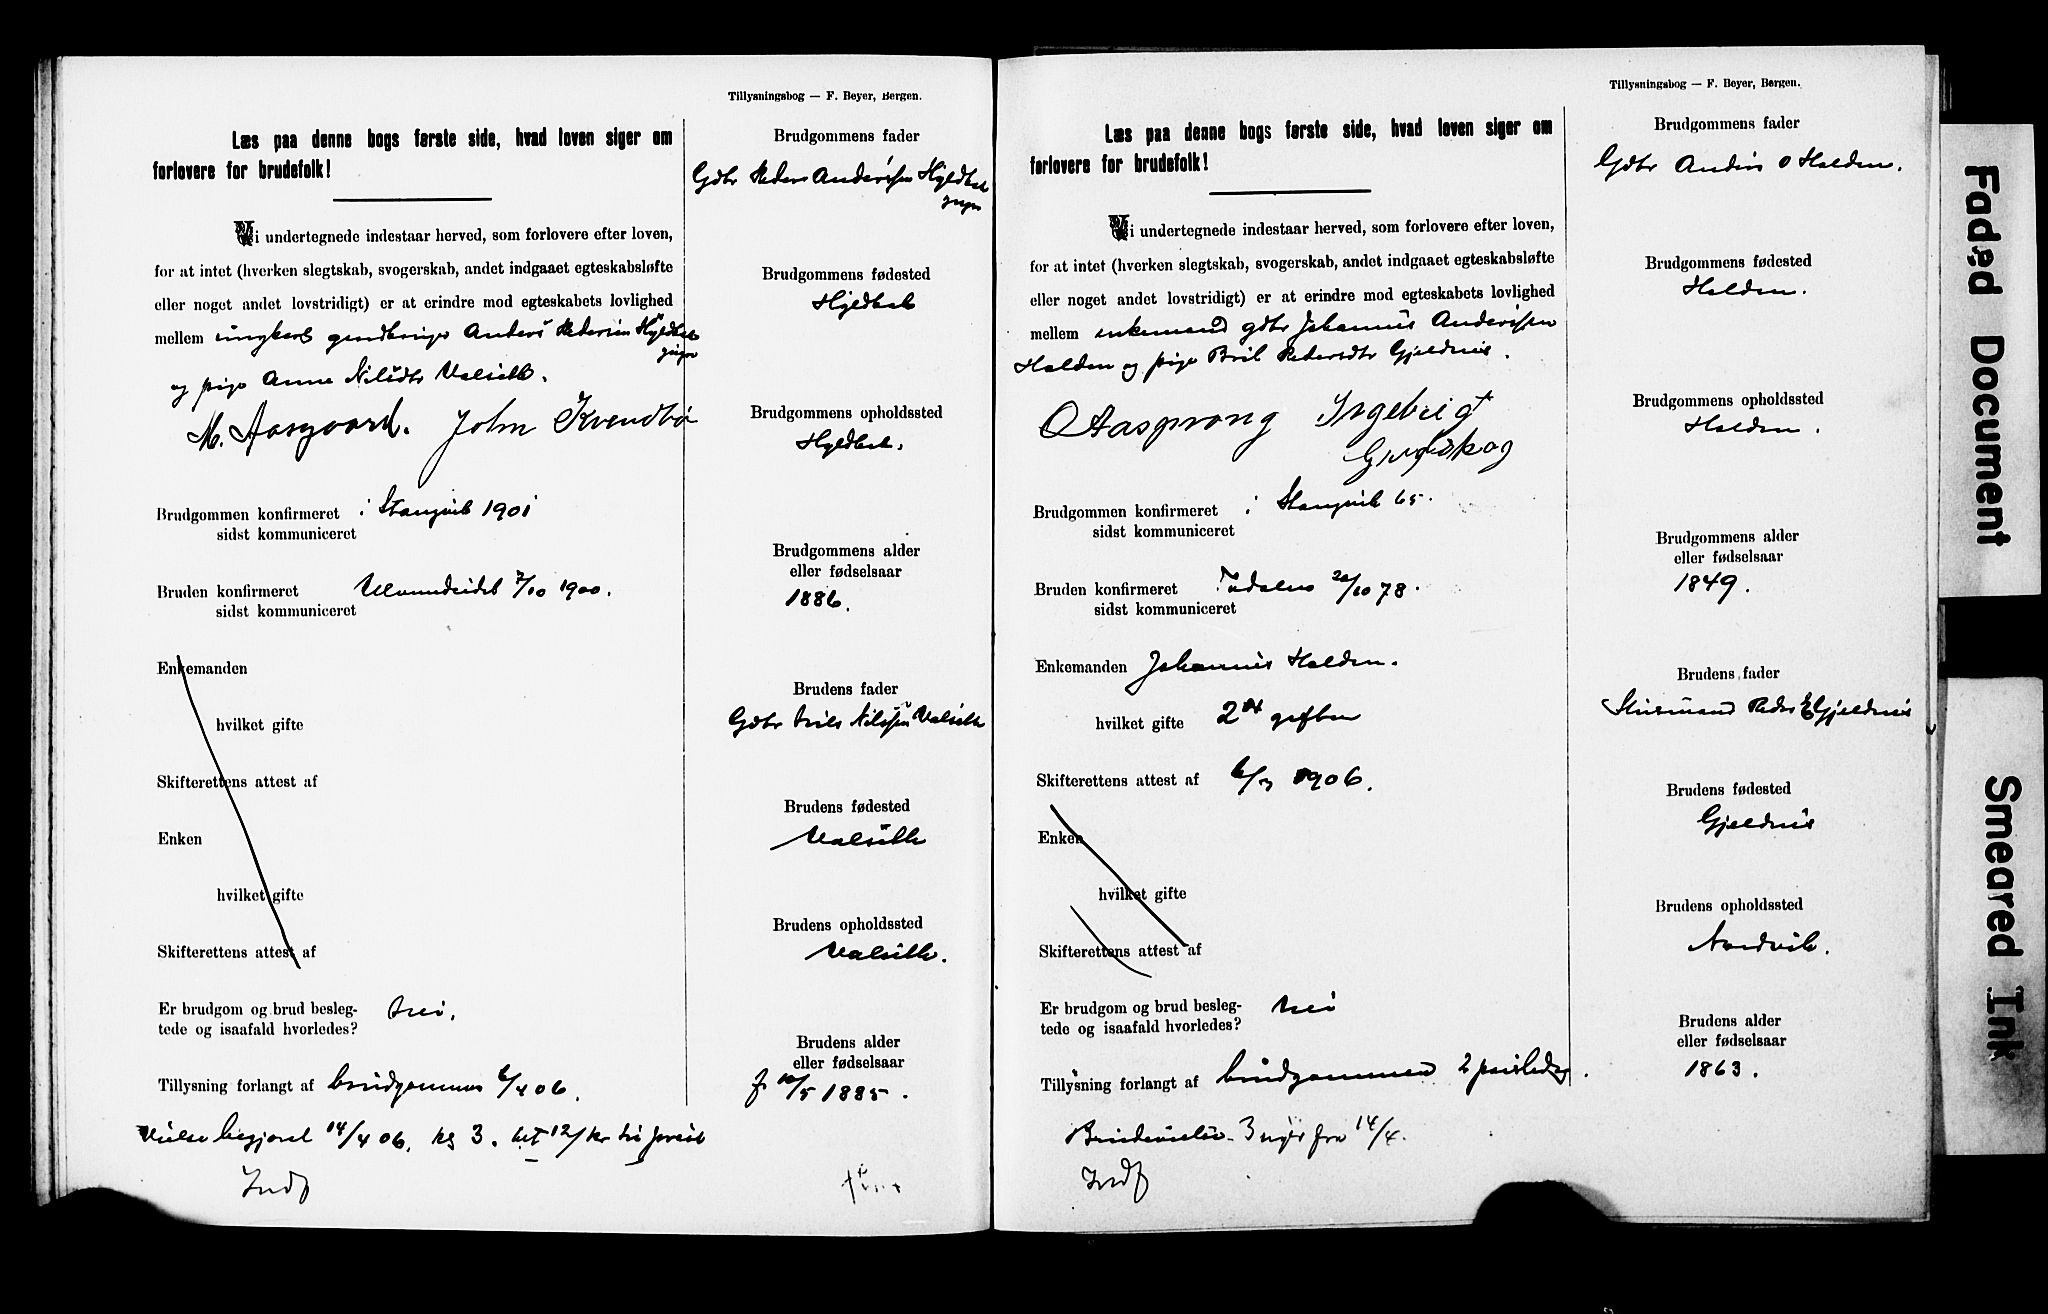 Tillysningsbog — F. Beyer, Bergen.
Læs paa denne bogs første side, hvad loven siger om
forlovere for brudefolk!
Vi undertegnede indestaar herved, som forlovere efter loven,
for at intet (hverken slegtskab, svogerskab, andet indgaaet egteskabsløfte
eller noget andet lovstridigt) er at erindre mod egteskabets lovlighed
mellem ungkarl Anders Pedersen
og pige Anne Nilsdtr Valseth.
M. Aasgaard. John Kvendbø
Brudgommen konfirmeret i Stangvik 1901
sidst kommuniceret
Bruden konfirmeret 7/10 1900.
sidst kommuniceret
Enkemanden
hvilket gifte
Skifterettens attest af
Enken
hvilket gifte
Skifterettens attest af
Er brudgom og brud beslegtede og isaafald hvorledes? Nei.
Tillysning forlangt af brudgommen 6/4 06.
Vielse begjæret 14/4 06. kl 3.
Indf
Brudgommens fader
Gdbr Peder Anderssen
Brudgommens fødested
Brudgommens opholdssted
Brudgommens alder
eller fødselsaar
1886.
Brudens fader
Gdbr Nils Nilssen Valseth
Brudens fødested
Valseth
Brudens opholdssted
Valseth.
Brudens alder
eller fødselsaar
f 10/5 1885.
Tillysningsbog — F. Beyer, Bergen.
Læs paa denne bogs første side, hvad loven siger om
forlovere for brudefolk!
Vi undertegnede indestaar herved, som forlovere efter loven,
for at intet (hverken slegtskab, svogerskab, andet indgaaet egteskabsløfte
eller noget andet lovstridigt) er at erindre mod egteskabets lovlighed
mellem enkemand gdbr Johannes Anderssen
Halden og pige Brit Pedersdtr Gjeldnes.
O Aasprong Ingebrigt
Brudgommen konfirmeret i Stangvik 65.
sidst kommuniceret
Bruden konfirmeret Todalen 20/10 78.
sidst kommuniceret
Enkemanden Johannes Halden.
hvilket gifte 2det giften
Skifterettens attest af 6/3 1906.
Enken
hvilket gifte
Skifterettens attest af
Er brudgom og brud beslegtede og isaafald hvorledes? Nei
Tillysning forlangt af brudgommen 2 paaskedag.
Brudevielse 3 uger fra 14/4.
Indf
Brudgommens fader
Gdbr Anders O Halden.
Brudgommens fødested
Halden.
Brudgommens opholdssted
Halden.
Brudgommens alder
eller fødselsaar
1849.
Brudens fader
Husmand Peder E Gjeldnes
Brudens fødested
Gjeldnes
Brudens opholdssted
Nordvik.
Brudens alder
eller fødselsaar
1863.
Faded Document
Smeared Ink